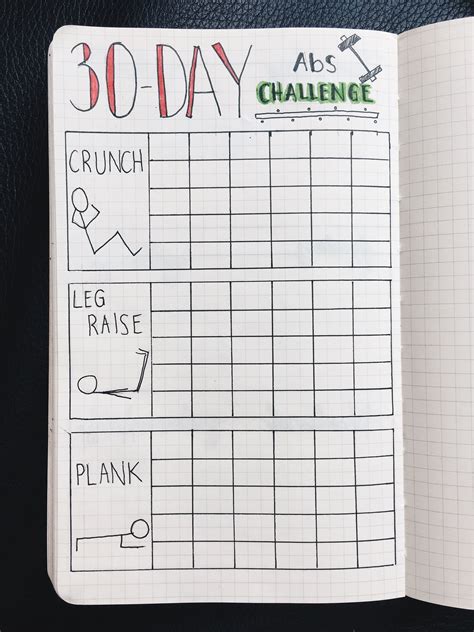 30-DAY Abs
CHALLENGE
CRUNCH
LEG
RAISE
PLANK